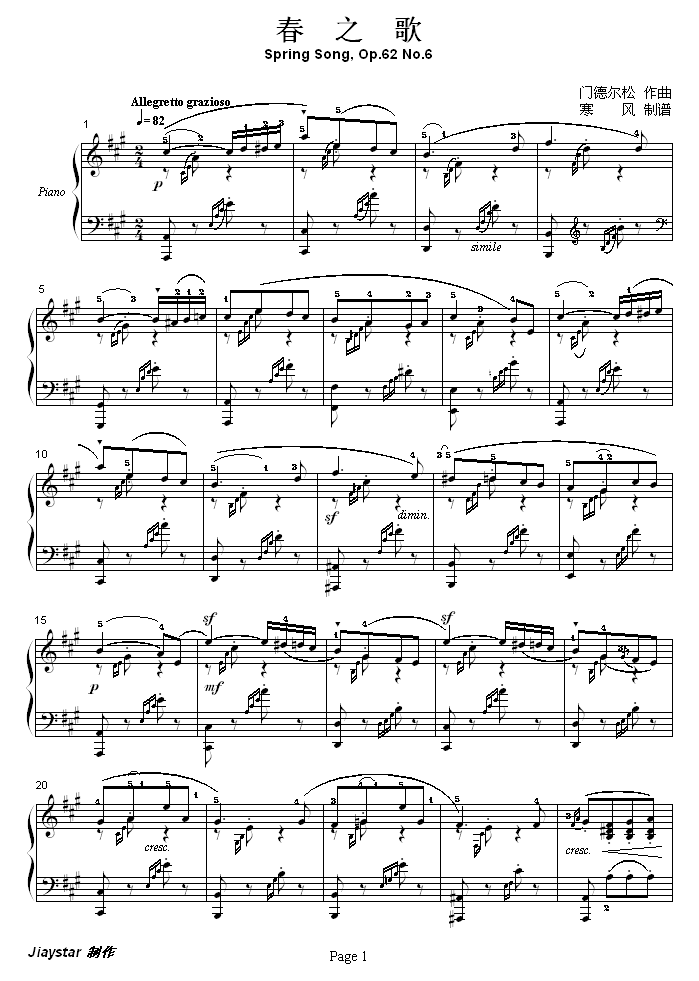 春 之 歌
Spring Song, Op.62 No.6
门德尔松 作曲
寒 风 制谱
Allegretto grazioso
♩= 82
1
Piano
p
simile
5
10
sf
dimin.
15
p
sf
mf
sf
20
cresc.
cresc.
Jiaystar 制作
Page 1